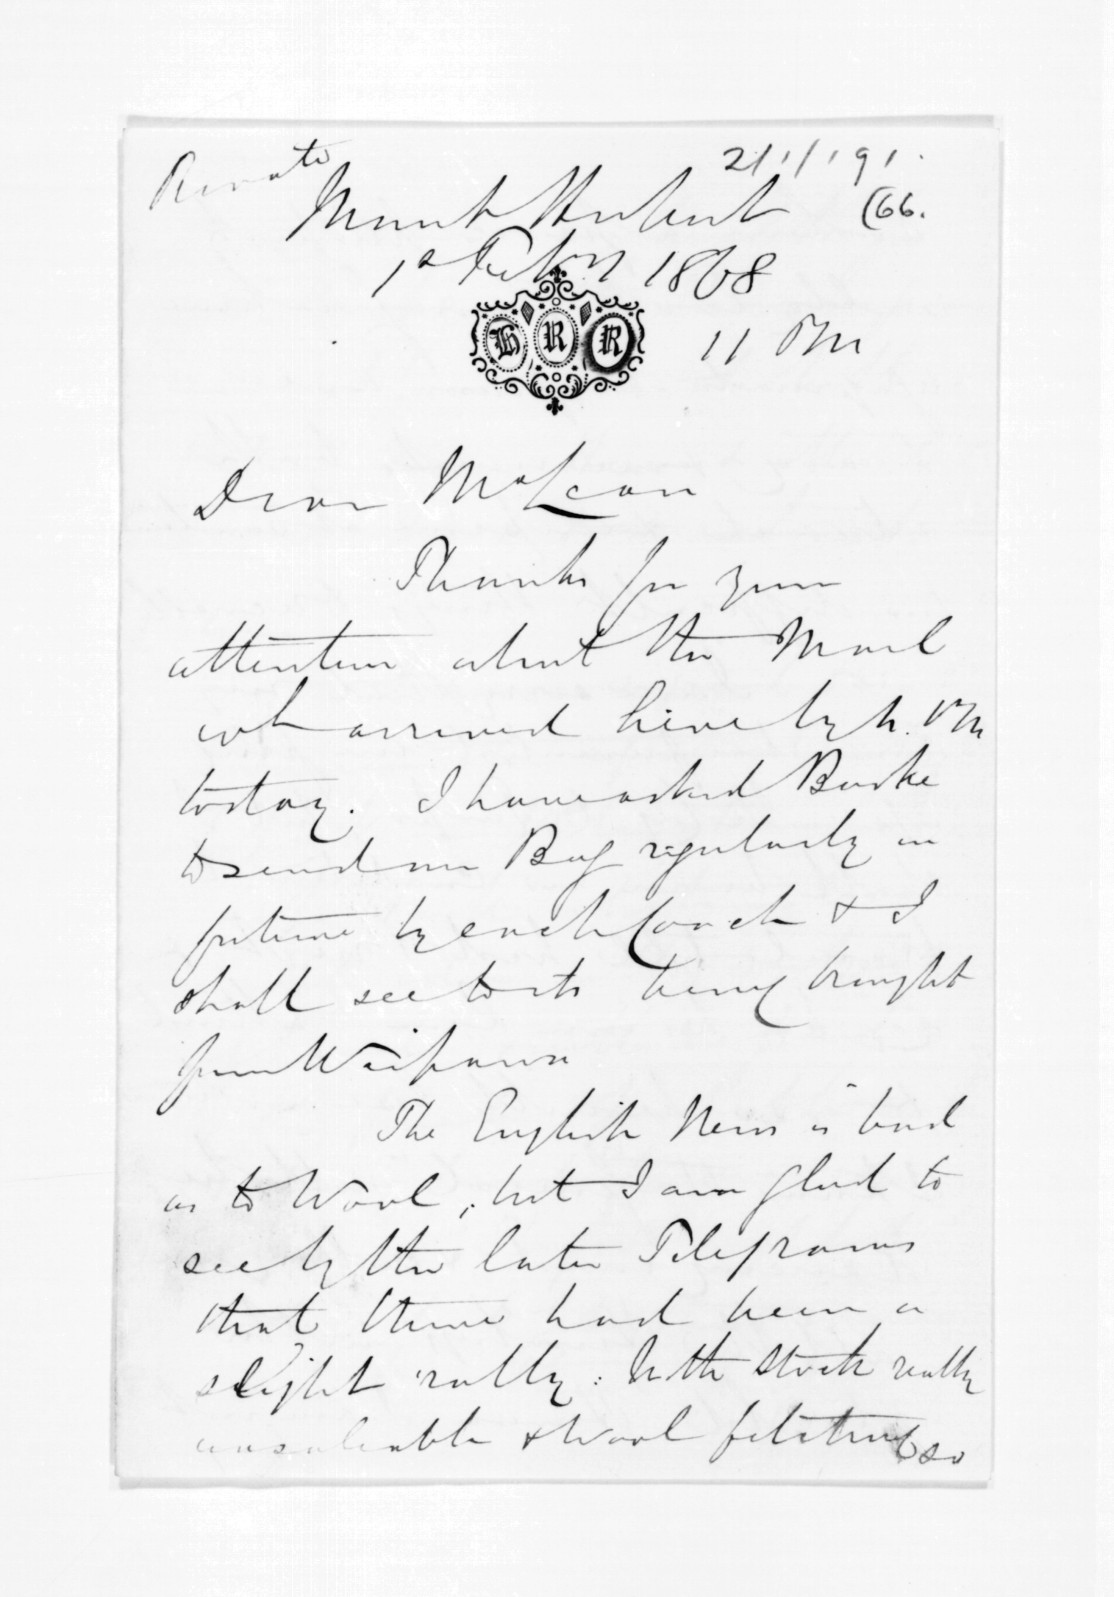 Private
21/1/91.
(66.
Mount Herbert
1st Feby 1868
H R R
11 PM
Dear McLean
Thanks for your
attention about the Mail
wh arrived here by h. PM
today. I have asked Burke
to send my Bag regularly in
future by each Coach & I
shall see to its being brought
from Waipawa
The English News is bad
as to Wool, but I am glad to
see by the later Telegrams
that there had been a
slight rally: With Stock really
unsaleable & Wool fetching so